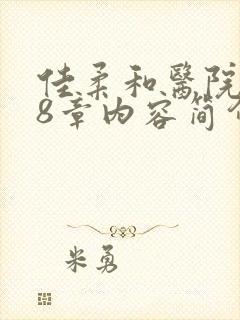 佳柔和醫院
8章内容简介
米勇